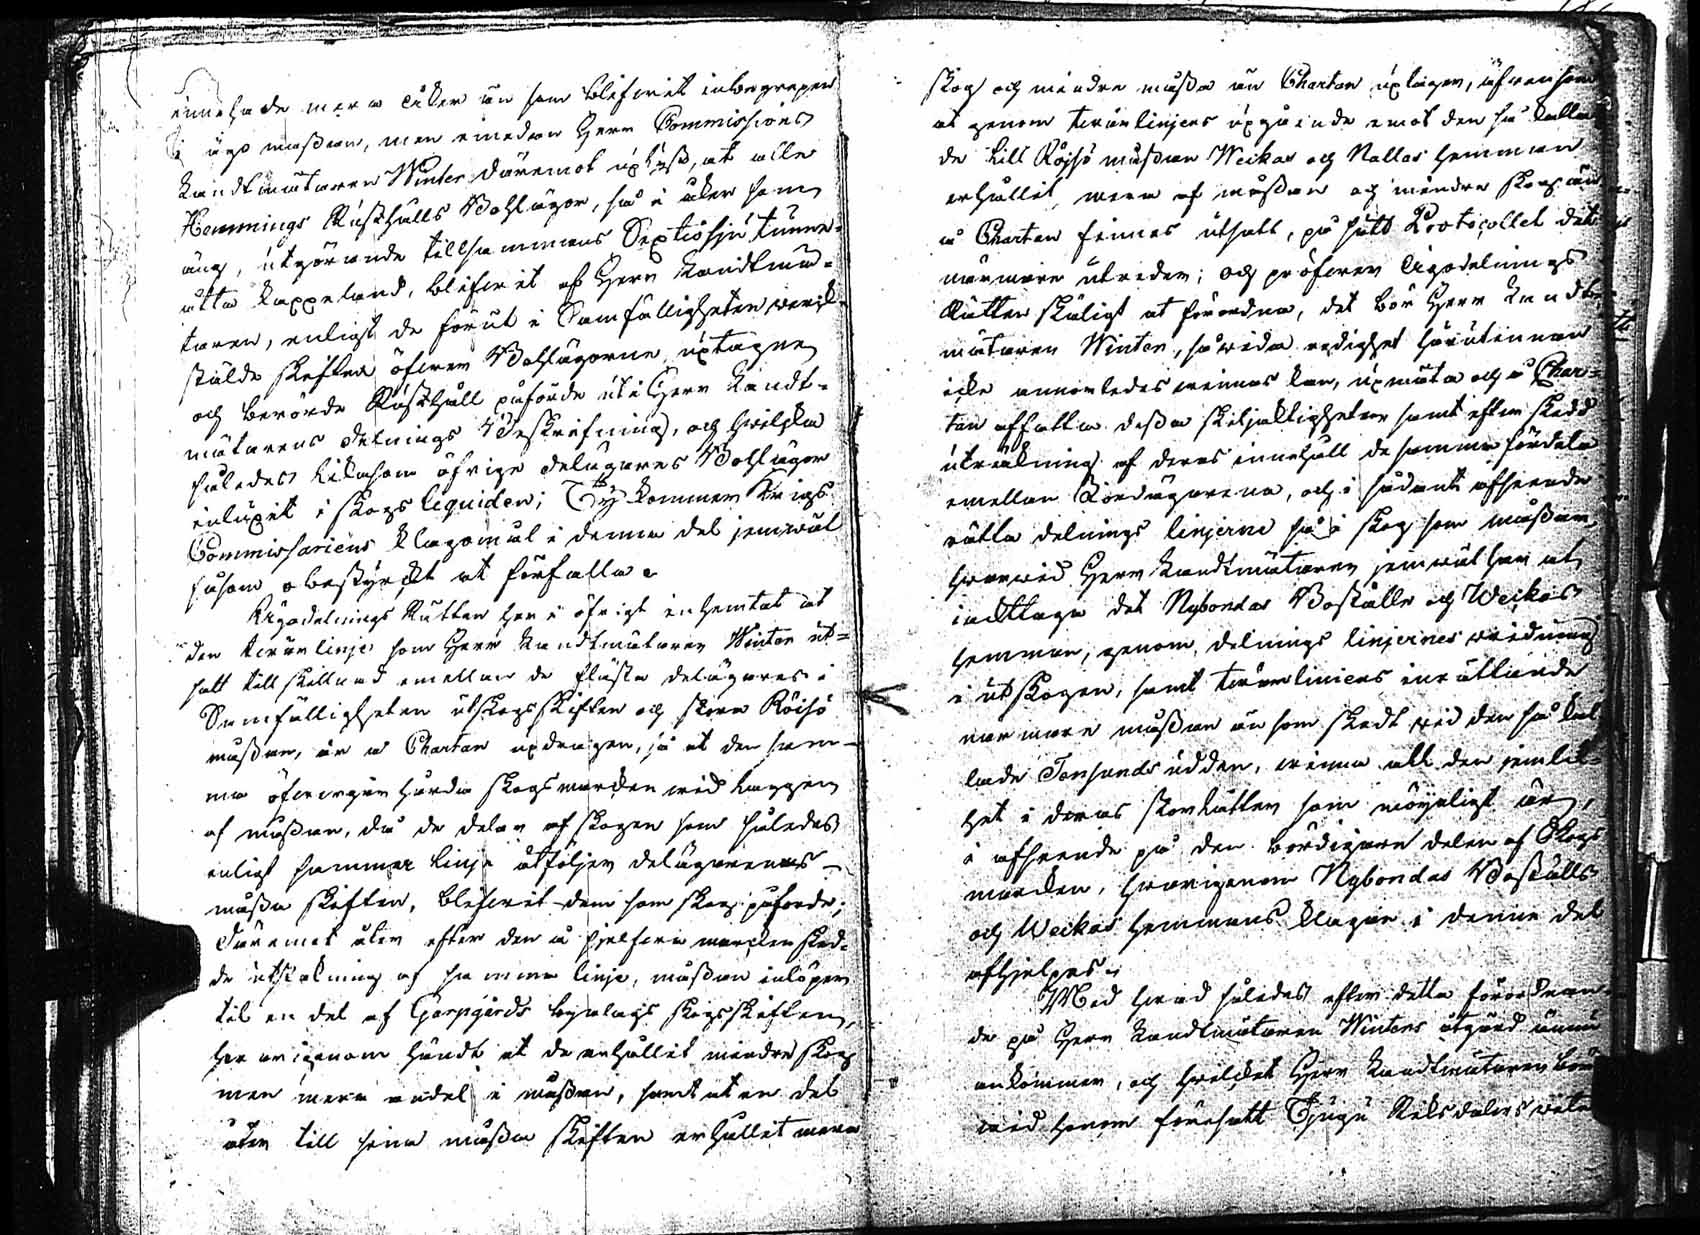 innehade mera åker än som blifvit inbegripen
i ägo massan, men emedan Herr Commissions
Landtmätaren Winter däremot uplyst, at alla
Hemmings Rusthålls Bohlägor, så i åker som
äng, utgörande tillsammans Sextiosju tunne-
åtta kappeland, blifvit af Herr Landtmä-
taren, enligt de förut i Samfälligheten werk-
stälde skiften öfwer Bohlägorne uptagne
och berörde Rusthåll påförde uti Herr Landt-
mätarens delnings Beskrifning, och hwilka
således likasom öfrige delägares Bohlägor
inlupit i skogs liquiden; Ty kommer Krigs
Commissariens klagomål i denna del jemwäl
såsom obestyrckt at förfalla.
Ägodelnings Rätten har i öfrigt inhemtat at
den tvärlinje som Herr Landtmätaren Winter ut-
satt till skillnad emellan de flästa delägares i
Samfälligheten utskogsskiften och stora Röisjö
måssan, är å Chartan updragen, så at den sam-
ma öfvergår hårda skogsmarcken wid kanten
af måssan, då de delar af skogen som således
enligt samma linje åtföljer delägarenas
måssa skiften, blifvit dem som skog påförde;
Däremot åter efter den å sjelfva marcken sked-
de utstakning af samma linje, måssan inlöper
til en del af Gerpgårds bys skogsskiften,
hwarigenom händt at de erhållit mindre skog
men mera andel i måssan, samt at en del
åter till sina måssa skiften erhållit mera
skog och mindre måssa än Chartan uptager, äfven som
at genom tvärlinjens upgående emot den så kalla-
de lill Röjsö måssan Weikas och Nallas hemman
erhållit mera af måssan och mindre skog än
å Chartan finnes utsatt, på sätt Protocollet det
närmare utreder; och pröfwer Ägodelnings
Rätten skäligt at förordna, det bör Herr Landt-
mätaren Winter, så wida redighet härutinnan
icke annorledes winnas kan, upmäta och å Char-
tan affatta dessa skiljaktigheter samt efter skedd
uträkning af deras innehåll de samma fördela
emellan Jordägarena, och i sådant afseende
rätta delnings linjerne så i skog som måssan,
hwarwid Herr Landtmätaren jemwäl har at
iacttaga det Nybondas Boställe och Weikas
hemman, genom delnings linjernes wridning
i utskogen, samt tvärliniens inrättande
närmare måssan än som skedt wid den så kal-
lade Tensunds udden, winna all den jemlik-
het i deras skovlotter som möyeligt är,
i afseende på den bördigare delen af Skogs
marcken, hwarigenom Nybondas Boställs
och Weikas hemmans klagan i denna del
afhjelpes.
Med hwad således efter detta förordnan-
de på Herr Landtmätaren Winters åtgärd ännu
ankommer, och hwilcket Herr Landtmätaren bör
wid honom föresatt Tjugu Riksdalers wite